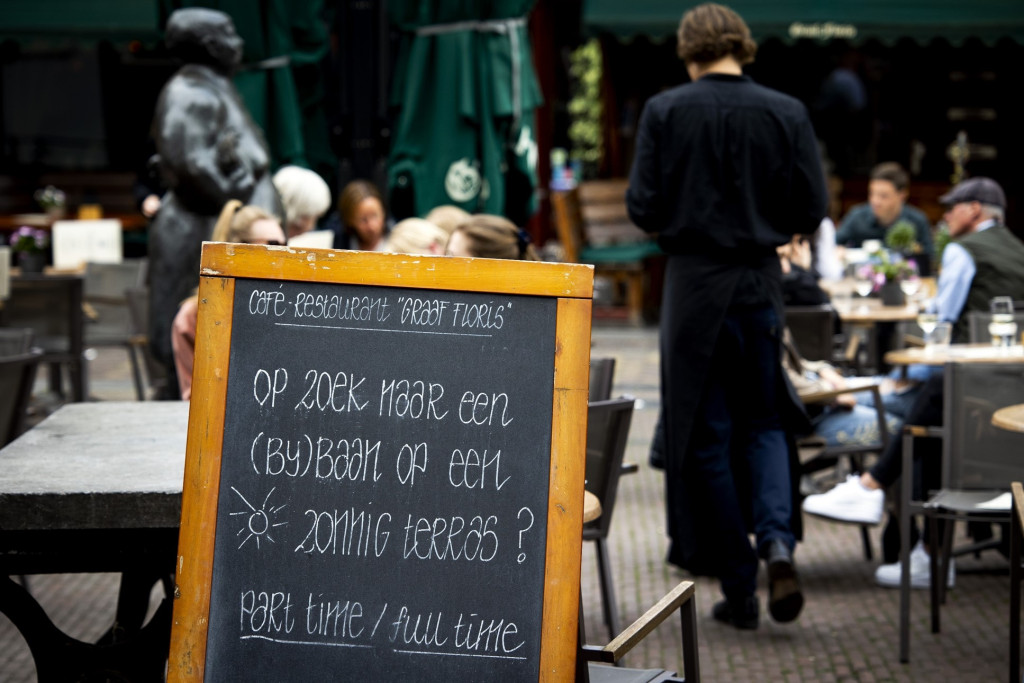 Café-Restaurant "Graaf Floris"
Op zoek naar een
(By)baan op een
zonnig terras?
Part time / full time